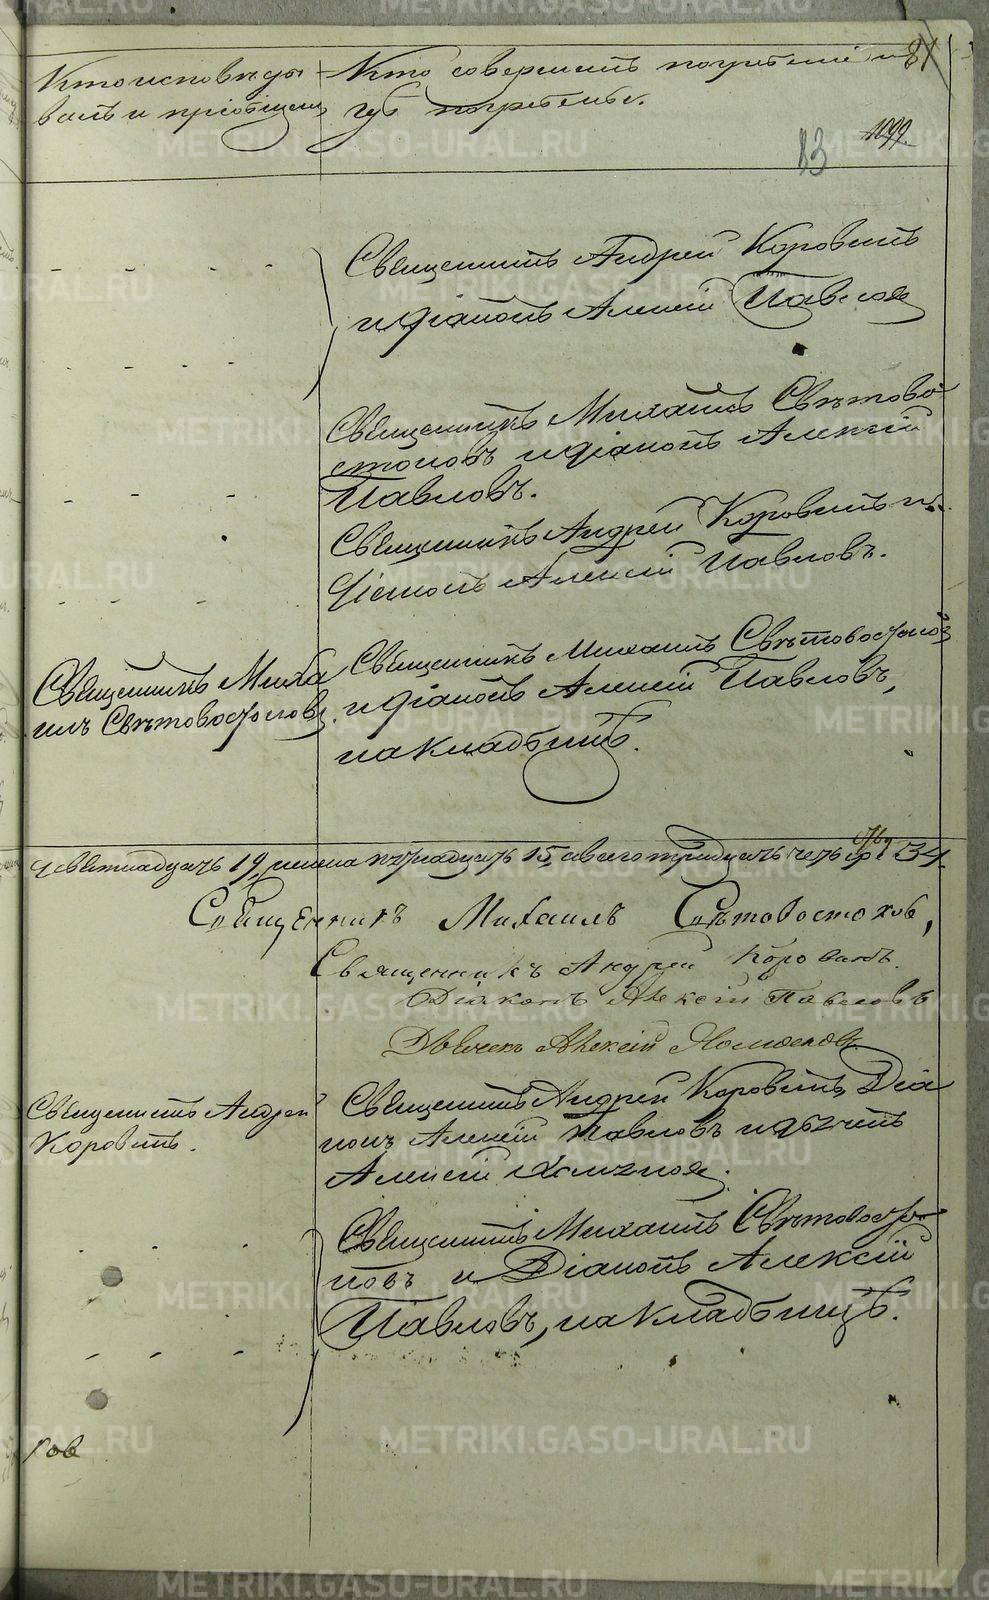 Кто исповѣды-
валъ и пріобщалъ
Кто совершалъ погребеніе и
гдѣ погребены.
81
13
1099
Священникъ Андрей Коровинъ
и діаконъ Алексій Павловъ
Священникъ Михаилъ Свѣтово-
стоковъ и діаконъ Алексій
Павловъ.
Священникъ Андрей Коровинъ и
діаконъ Алексій Павловъ.
Священникъ Миха
илъ Свѣтовостоковъ.
Священникъ Михаилъ Свѣтовостоковъ
и діаконъ Алексій Павловъ,
на кладбищѣ.
девятнадцать 19, женска пятнадцать 15, а всего тридцать четыре 34.
Священникъ Михаилъ Свѣтовостоковъ,
Священникъ Андрей Коровинъ.
Діаконъ Алексій Павловъ
Дьячекъ Алексій
Священникъ Андрей
Коровинъ.
Священникъ Андрей Коровинъ, Діа
конъ Алексій Павловъ и дьячекъ
Алексій
Священникъ Михаилъ Свѣтовосто-
ковъ и Діаконъ Алексій
Павловъ, на кладбищѣ.
ров
METRIKI.GASO-URAL.RU